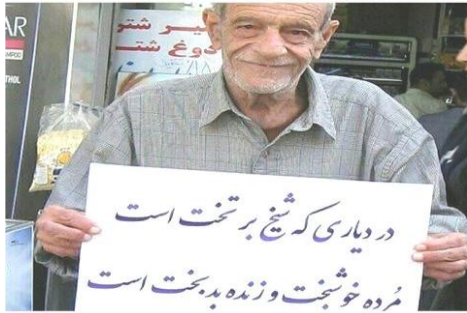 AR
THOL
شیر شتر
دوغ شتر
در دیاری که شیخ بر تخت است
مُرده خوشبخت و زنده بدبخت است